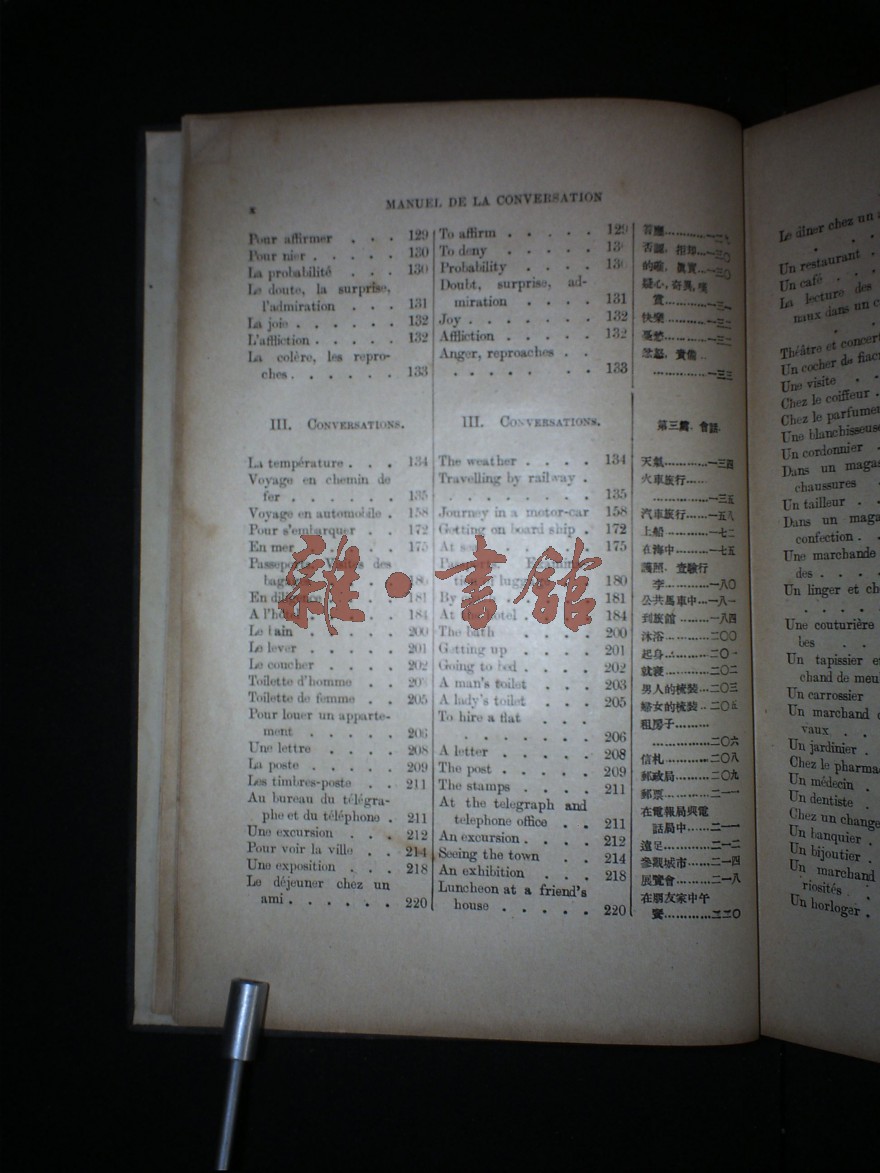 x
MANUEL DE LA CONVERSATION
Pour affirmer . . . 129
Pour nier . . . . . 130
La probabilité . . . 130
Le doute, la surprise,
l'admiration . . . 131
La joie . . . . . . 132
L'affliction . . . . . 132
La colère, les repro-
ches . . . . . . 133
III. CONVERSATIONS.
La température . . . 134
Voyage en chemin de
fer . . . . . . . 135
Voyage en automobile . 158
Pour s'embarquer . . 172
En mer . . . . . 175
Passeports. Visites des
bagages . . . . 180
En diligence . . . 181
A l'hôtel . . . . 184
Le bain . . . . . 200
Le lever . . . . . 201
Le coucher . . . . 202
Toilette d'homme . . 203
Toilette de femme . . 205
Pour louer un apparte-
ment . . . . . 206
Une lettre . . . . 208
La poste . . . . . 209
Les timbres-poste . . 211
Au bureau du télégra-
phe et du téléphone . 211
Une excursion . . . 212
Pour voir la ville . . 214
Une exposition . . . 218
Le déjeuner chez un
ami . . . . . . 220
To affirm . . . . . 129
To deny . . . . . 130
Probability . . . . 130
Doubt, surprise, ad-
miration . . . . 131
Joy . . . . . . . 132
Affliction . . . . . 132
Anger, reproaches . .
. . . . . . . . 133
III. CONVERSATIONS.
The weather . . . . 134
Travelling by railway .
. . . . . . . . 135
Journey in a motor-car 158
Getting on board ship . 172
At sea . . . . . 175
Passports. Examina-
tion of luggage . . 180
By . . . . 181
At the hotel . . . . 184
The bath . . . . . 200
Getting up . . . . 201
Going to bed . . . . 202
A man's toilet . . . 203
A lady's toilet . . . 205
To hire a flat . . .
. . . . . . . . 206
A letter . . . . . 208
The post . . . . . 209
The stamps . . . . 211
At the telegraph and
telephone office . . 211
An excursion . . . . 212
Seeing the town . . 214
An exhibition . . . 218
Luncheon at a friend's
house . . . . . 220
答應............一二九
否認, 拒却...一三〇
的確, 眞實...一三〇
疑心, 奇異, 嘆
賞............一三一
快樂............一三二
憂愁............一三二
忿怒, 責備 ..
...............一三三
第三篇. 會話.
天氣............一三四
火車旅行.....
...............一三五
汽車旅行......一五八
上船............一七二
在海中.........一七五
護照. 查驗行
李............一八〇
公共馬車中...一八一
到旅館.........一八四
沐浴............二〇〇
起身............二〇一
就寢............二〇二
男人的梳裝...二〇三
婦女的梳裝...二〇五
租房子.........
...............二〇六
信札............二〇八
郵政局.........二〇九
郵票............二一一
在電報局與電
話局中......二一一
遠足............二一二
參觀城市......二一四
展覽會.........二一八
在朋友家中午
餐............二二〇
雜·書館
Le dîner chez un a
Un restaurant .
Un café . . .
La lecture des
naux dans un c
Théâtre et concert
Un cocher de fiacr
Une visite . .
Chez le coiffeur .
Chez le parfumeu
Une blanchisseuse
Un cordonnier .
Dans un magas
chaussures .
Un tailleur . .
Dans un maga
confection . .
Une marchande
des . . . .
Un linger et ch
. . . .
Une couturière
bes . .
Un tapissier e
chand de meu
Un carrossier
Un marchand d
vaux . . .
Un jardinier .
Chez le pharma
Un médecin .
Un dentiste .
Chez un change
Un banquier .
Un bijoutier .
Un marchand
riosités .
Un horloger .